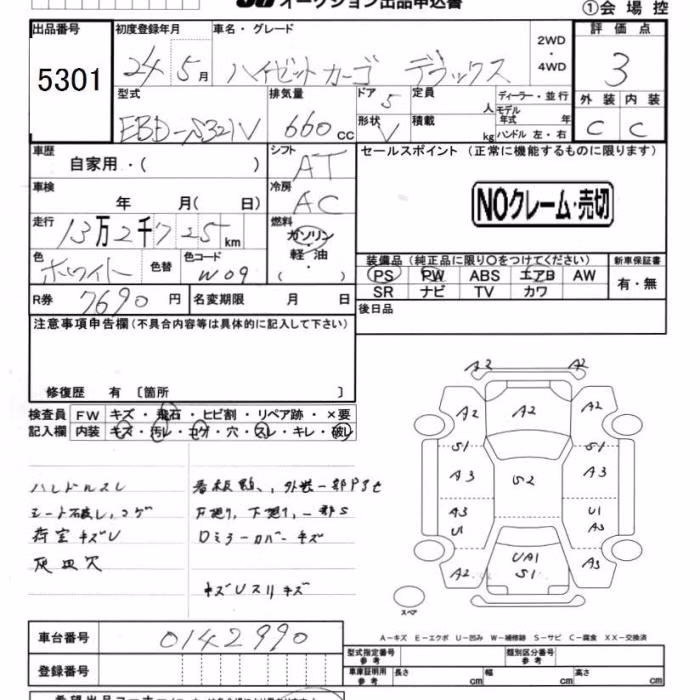 オークション出品申込書
①会場控
出品番号 初度登録年月 車名・グレード 評価点
5301 24年5月 ハイゼットカーゴ デラックス 2WD・4WD 3
型式 排気量 ドア 5 定員 人 ディーラー・並行 外装 内装
EBD-S321V 660cc 形状 V 積載 kg モデル年式 年 ハンドル 左・右 C C
車歴 自家用・( ) シフト AT セールスポイント (正常に機能するものに限ります)
車検 年 月( 日) 冷房 AC NOクレーム・売切
走行 13万2千725km 燃料 ガソリン・軽油・( )
色 ホワイト 色替 色コード W09
装備品(純正品に限り○をつけてください) 新車保証書
PS PW ABS エアB AW 有・無
SR ナビ TV カワ
R券 7690円 名変期限 月 日 後日品
注意事項申告欄(不具合内容等は具体的に記入して下さい)
修復歴 有 〔箇所 〕
検査員 FW キズ・飛石・ヒビ割・リペア跡・×要
記入欄 内装 キズ・汚レ・コゲ・穴・スレ・キレ・破レ
ハンドルスレ
シート破レ、コゲ 下廻り、一部S
荷室キズU ロミラーカバーキズ
灰皿欠
キズUスリキズ
A2 A2
A2 A2 A2
S1 S1
A3 S2 A3
A3 U1
U1 A3
A2 UA1 A3
S1
スペア
A-キズ E-エクボ U-凹み W-補修跡 S-サビ C-腐食 XX-交換済
車台番号 0142990
型式指定番号 参考 類別区分番号 参考
登録番号 車庫証明用 参考 長さ cm 幅 cm 高さ cm